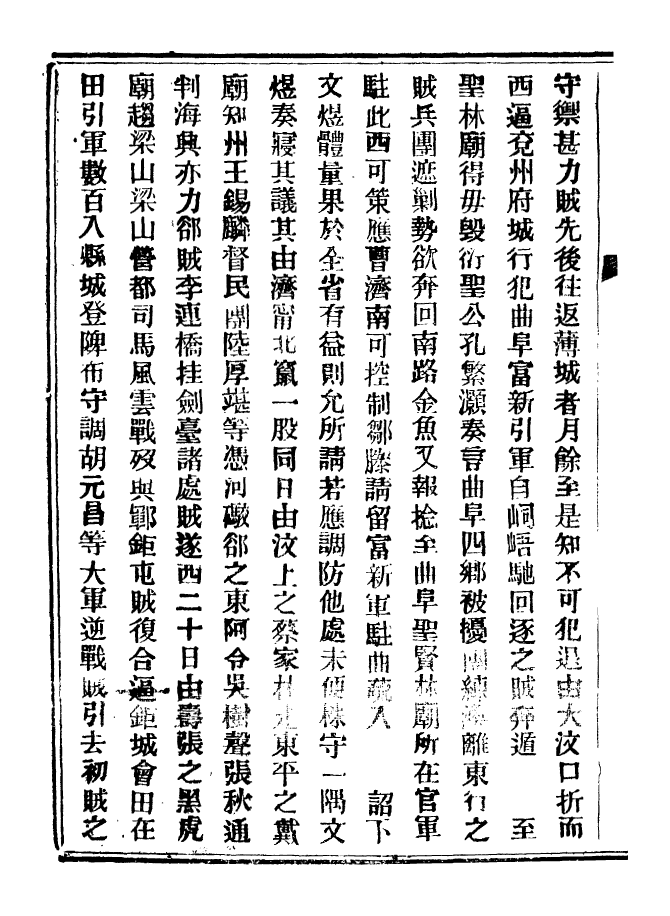 守禦甚力賊先後往返薄城者月餘至是知不可犯退由大汶口折而
西逼兗州府城行犯曲阜富新引軍自峒峿馳回逐之賊奔遁　至
聖林廟得毋毀衍聖公孔繁灝奏言曲阜四鄉被擾團練 離東行之
賊兵團遮剿勢欲奔回南路金魚又報捻至曲阜聖賢林廟所在官軍
駐此西可策應曹濟南可控制鄒滕請留富新軍駐曲疏入　詔下
文煜體量果於全省有益則允所請若應調防他處未便株守一隅文
煜奏寢其議其由濟甯北竄一股同日由汶上之蔡家林走東平之戴
廟知州王錫麟督民團陸厚堪等憑河礮郤之東阿令吳樹聲張秋通
判海興亦力郤賊李連橋挂劍臺諸處賊遂西二十日由壽張之黑虎
廟趨梁山梁山營都司馬風雲戰歿與鄆鉅屯賊復合逼鉅城會田在
田引軍數百入縣城登陴布守調胡元昌等大軍逆戰賊引去初賊之